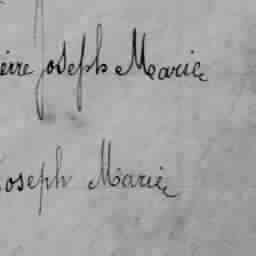 ierre Joseph Marie
Joseph Marie